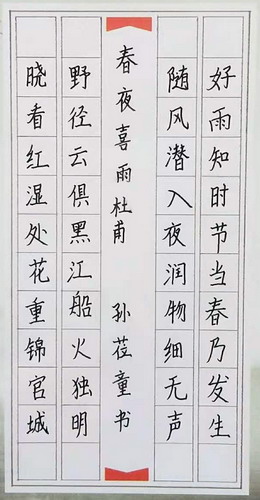 好雨知时节当春乃发生
随风潜入夜润物细无声
春夜喜雨杜甫 孙莅童书
野径云俱黑江船火独明
晓看红湿处花重锦官城